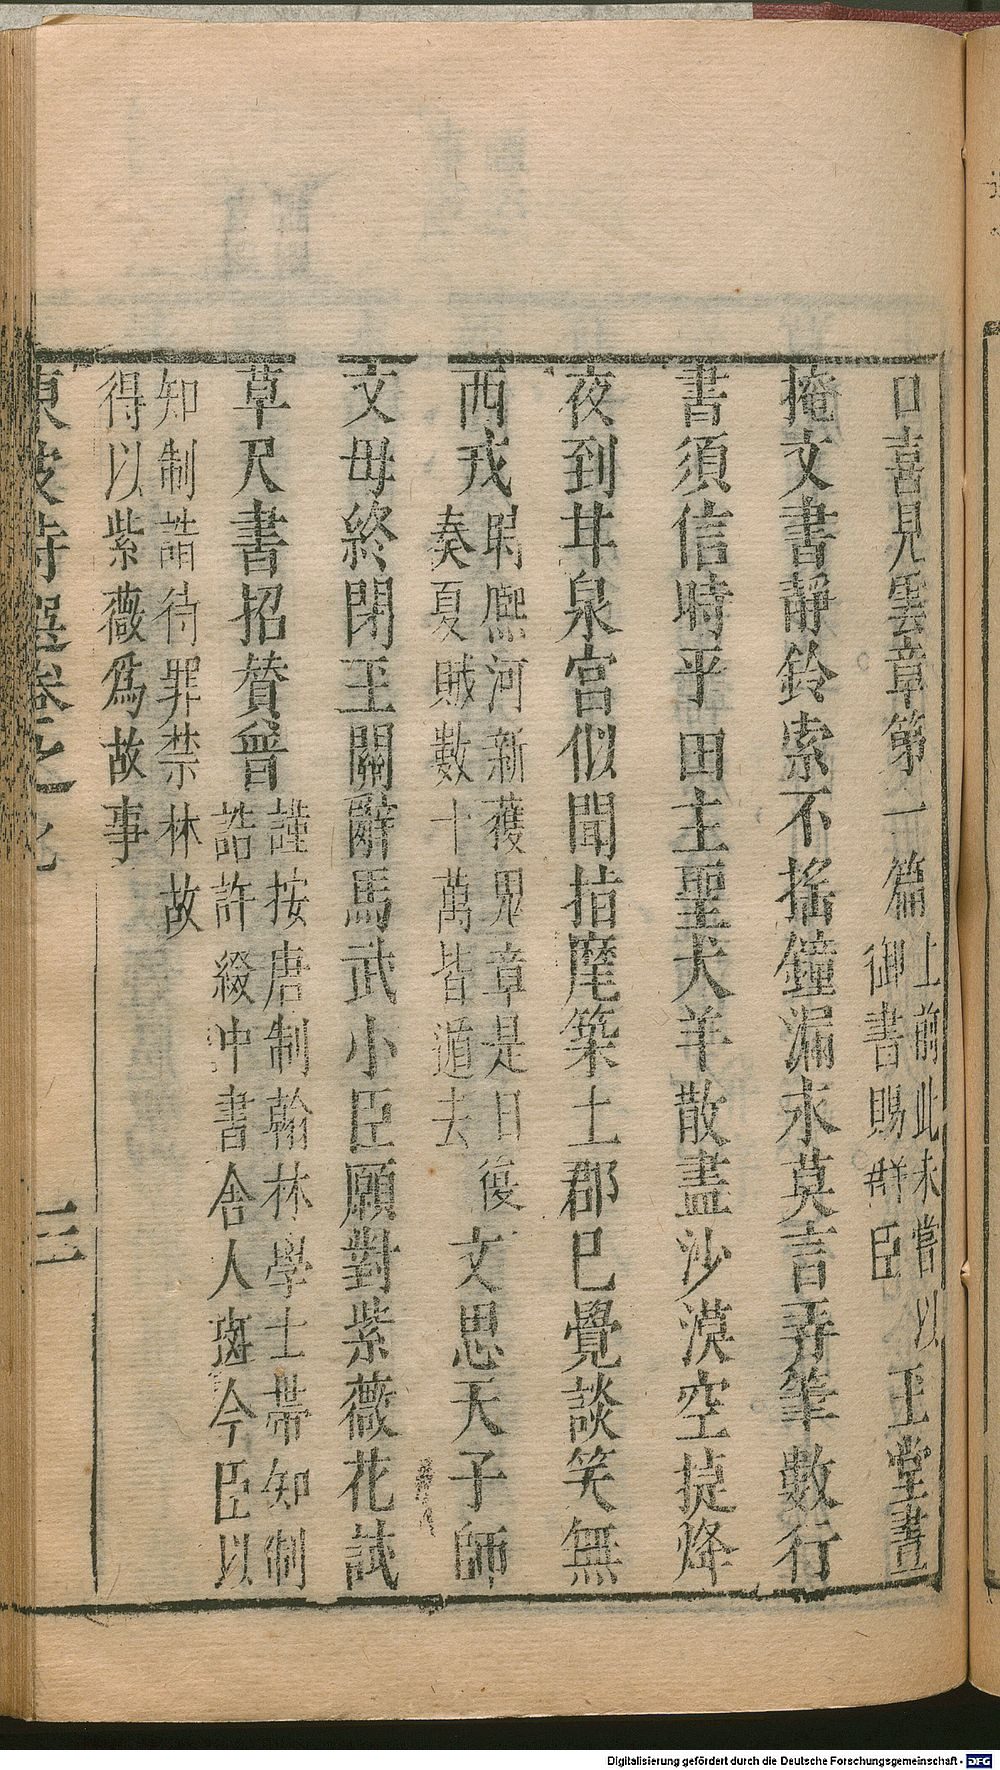 口喜見雲章第一篇上前此未嘗以御書賜群臣玉堂晝
掩文書靜鈴索不搖鐘漏永莫言弄筆數行
書須信時平田主聖犬羊散盡沙漠空捷烽
夜到甘泉宮似聞指麾築土郡已覺談笑無
西戎時熙河新獲鬼章是日復奏夏賊數十萬皆遁去文思天子師
文母終閉玉關辭馬武小臣願對紫薇花試
草尺書招贊曾謹按唐制翰林學士帶知制誥許綴中書舍人班今臣以
知制誥待罪禁林故得以紫薇爲故事
東坡詩選卷之七 三
Digitalisierung gefördert durch die Deutsche Forschungsgemeinschaft - DFG